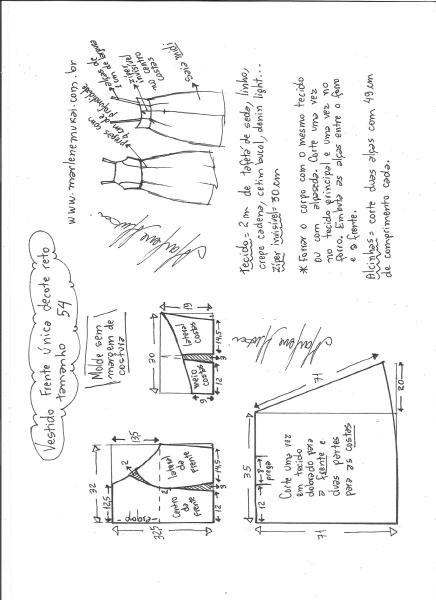 Vestido Frente única decote reto
tamanho 54
Molde sem
margem de
costura
www.marlenemukai.com.br
pregas com
4 cm de
profundidade
alças de
1 cm de largura
zíper
invisível
no centro
costas
Saia midi
Tecido = 2 m de tafetá de seda, linho,
crepe cadena, cetim bucol, denin light...
zíper invisível = 30 cm
* Forrar o corpo com o mesmo tecido
ou com alpaseda. Corte uma vez
no tecido principal e uma vez no
forro. Embuta as alças entre o forro
e a frente.
Alcinhas = corte duas alças com 49 cm
de comprimento cada.
32
12,5
13,5
2
2
dobra
32,5
Centro
da
frente
lateral
da
frente
12
3
14,5
30
19
9
meio
costas
lateral
costas
12
3
14,5
35
12
8
prega
Corte uma vez
em tecido
dobrado para
a frente e
duas partes
para as costas
71
71
20